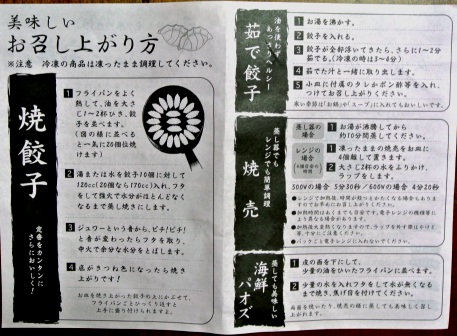 美味しい
お召し上がり方
※注意 冷凍の商品は凍ったまま調理してください。
焼餃子
定番をカンタンに
さらにおいしく!
1 フライパンをよく
熱して、油を大さ
じ1~2杯ひき、餃
子を並べます。
(図の様に並べる
と一気に20個は焼
けます)
2 湯または水を餃子10個に対して
120cc(20個なら170cc)入れ、フタ
をして強火で水分がほとんどなく
なるまで蒸し焼きにします。
3 ジュワーという音から、ピチ!ピチ!
と音が変わったらフタを取り、
中火で余分な水分をとばします。
4 底がきつね色になったら焼き
上がりです!
お皿を焼き上がった餃子の上にかぶせて、
フライパンごとひっくり返すと
上手に盛り付けられますよ。
茹で餃子
油を使わず
あっさりヘルシー
1 お湯を沸かす。
2 餃子を入れる。
3 餃子が全部浮いてきたら、さらに1~2分
茹でる。(冷凍の時は3~4分)
4 茹でた汁と一緒に取り出します。
5 小皿に付属のタレかポン酢等を入れ、
つけてお召し上がりください。
寒い季節は「お鍋」や「スープ」に入れてもおいしいです。
焼売
蒸し器でも
レンジでも簡単調理
蒸し器の
場合
1 お湯が沸騰してから
約10分間蒸してください。
レンジの
場合
1 凍ったままの焼売をお皿に
4個離して置きます。
2 大さじ2杯の水をふりかけ、
ラップをします。
500Wの場合 5分20秒/600Wの場合 4分20秒
●レンジで加熱後、時間が経つとかたくなる場合もありま
すのでお早めにお召し上がりください。
●加熱時間はあくまでも目安です。電子レンジの機種等に
より異なる場合があります。
●パックごと電子レンジに入れないでください。
海鮮パオズ
蒸しても美味しい
1 皮の面を下にして、
少量の油をひいたフライパンに並べます。
2 少量の水を入れフタをして水が無くなる
まで焼き、焦げ目を付けてください。